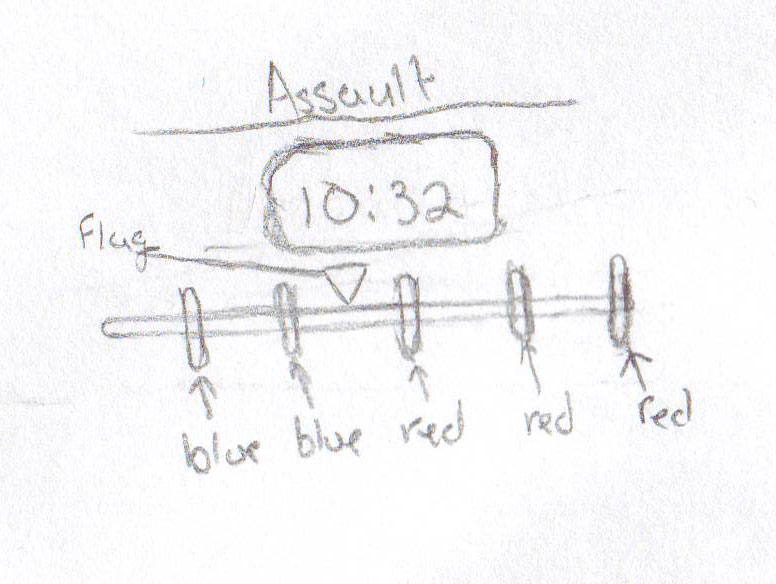 Assault
10:32
Flag
blue blue red red red